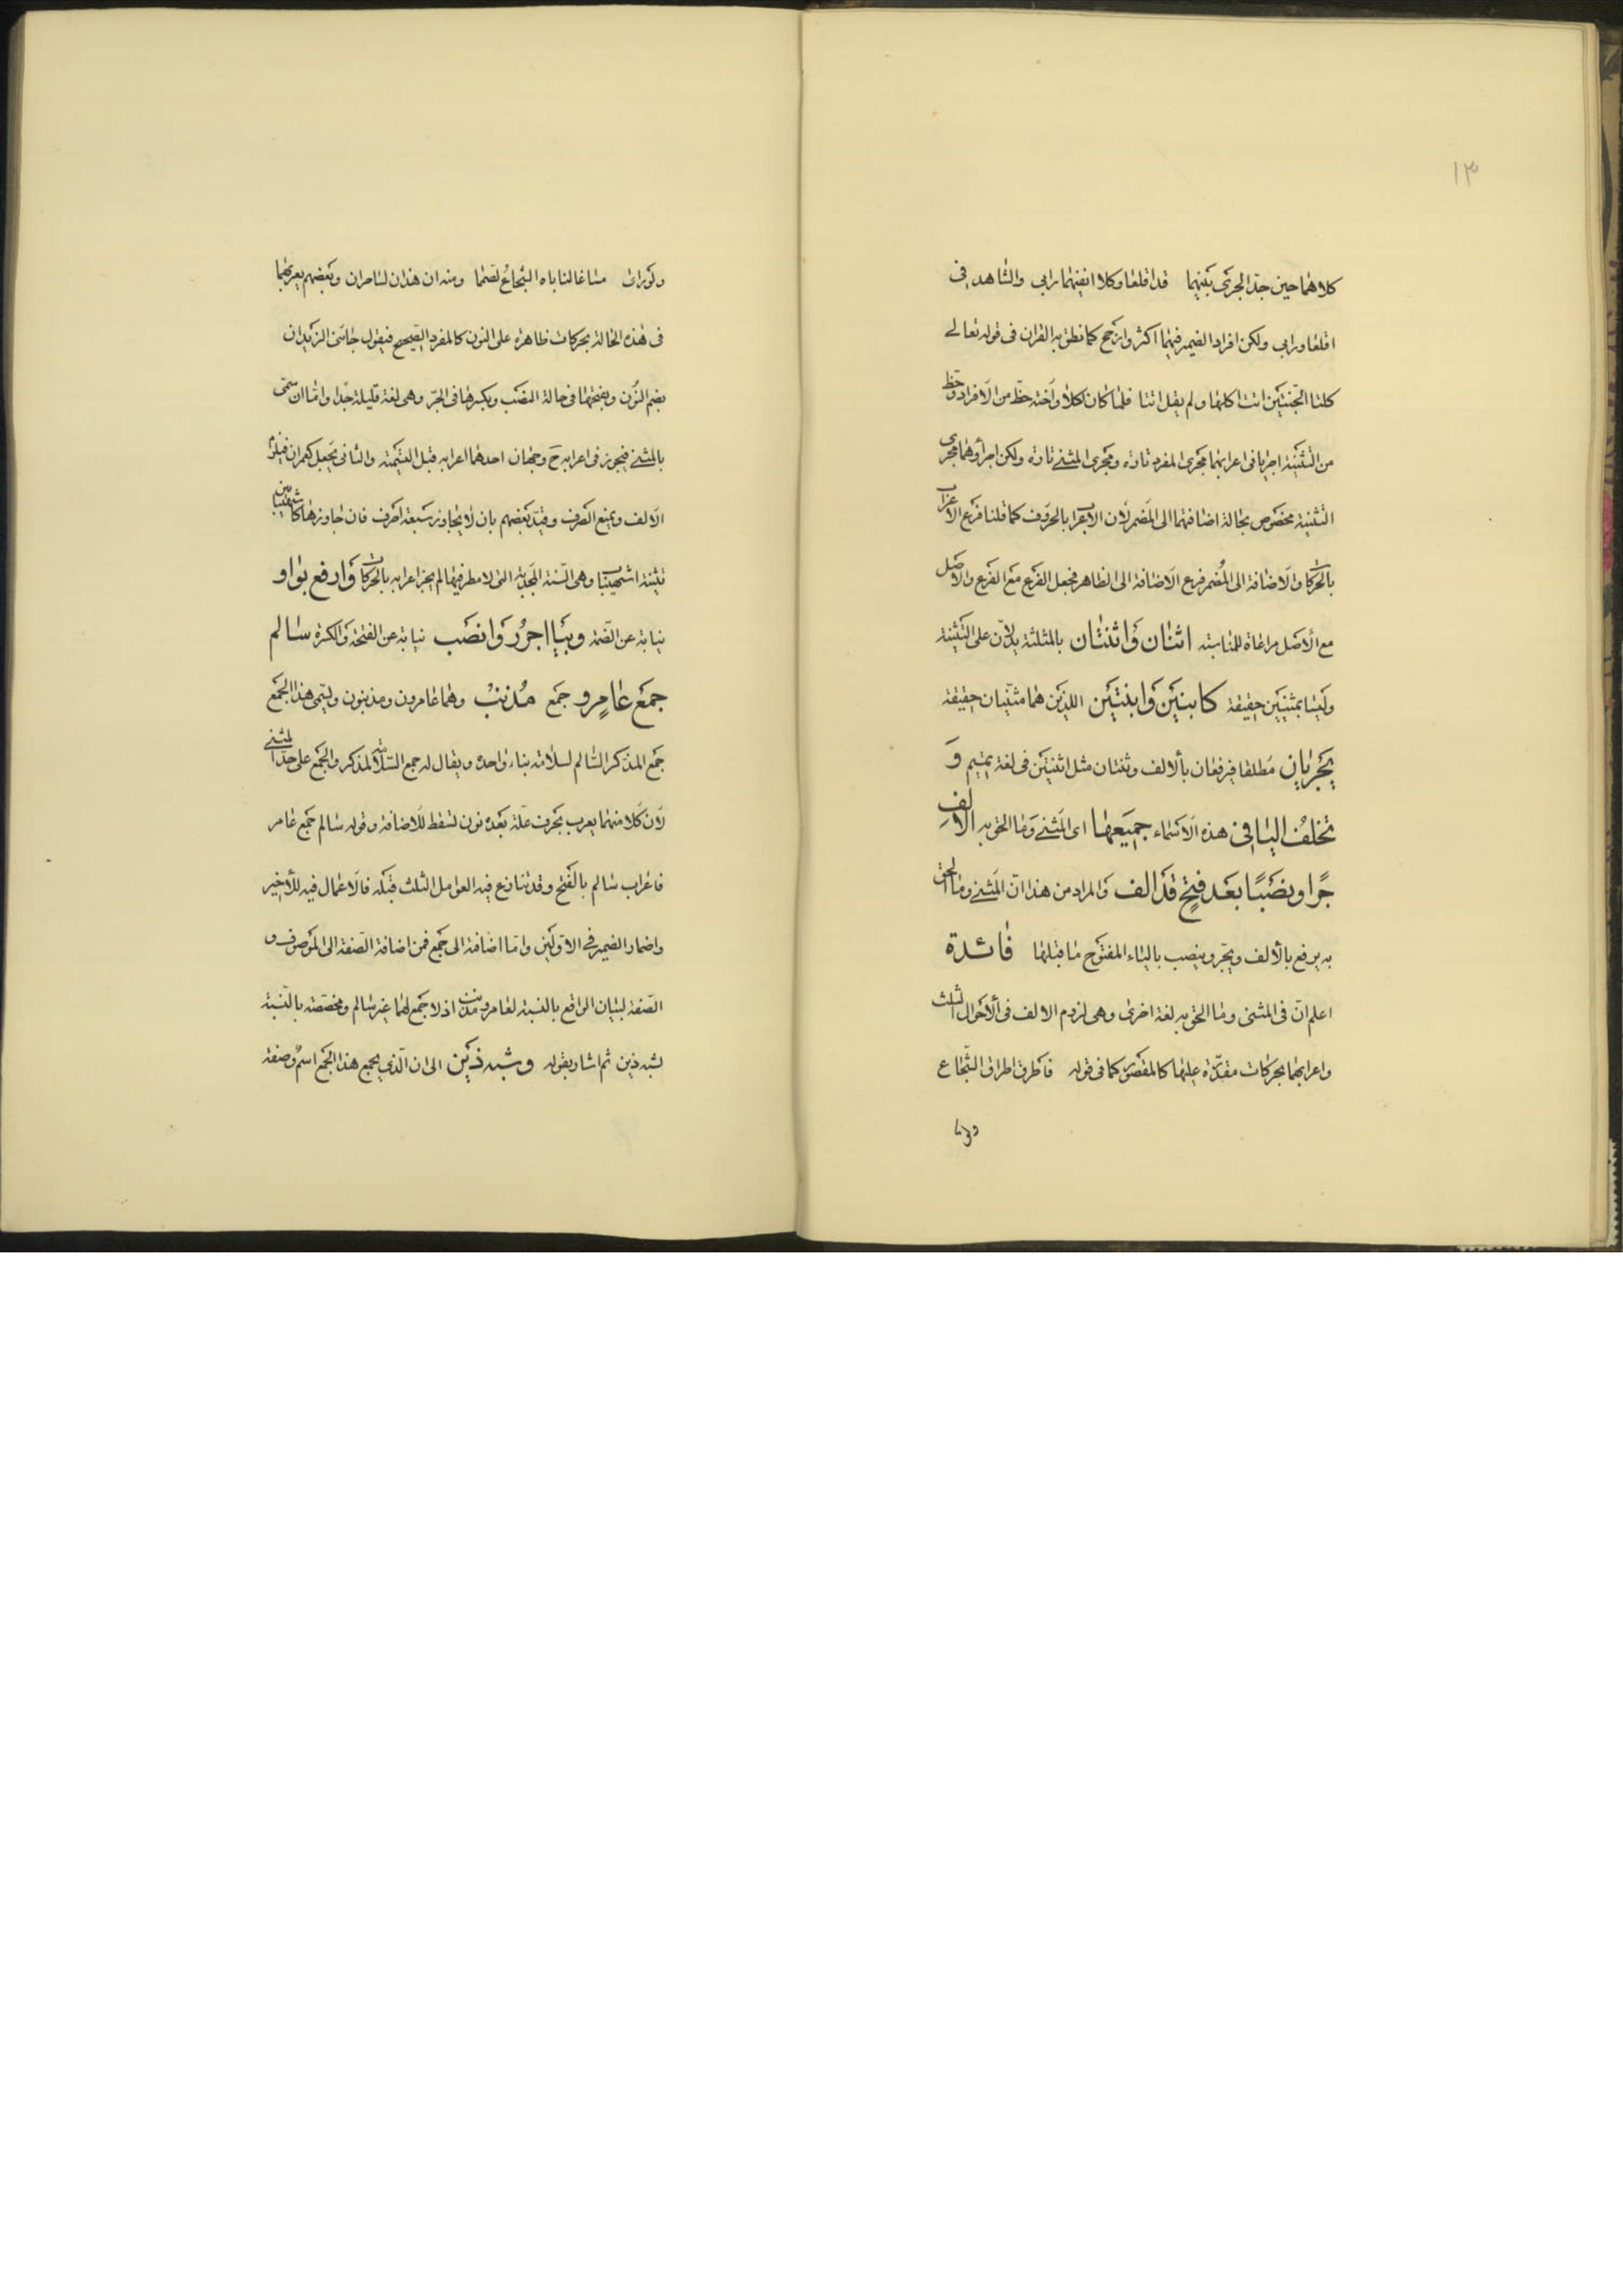 ١٣
كلاهما حين جدّ الجرى بينهما قد اقلعا وكلا انفيهما رابي والشاهد في
اقلعا ورابي ولكن افراد الضمير فيهما اكثر وارجح كما نطق به القران في قوله تعالى
كلتا الجنتين اتت اكلها ولم يقل اتتا فلما كان لكلا ولخته حظّ من الافراد وحظ
من التثنية اجريا في اعرابهما مجرى المفرد تارة ومجرى المثنى تارة ولكن اجراؤهما مجرى
التثنية مخصوص بحالة اضافتهما الى المضمر لان الاعراب بالحروف كما قلنا فرع الاعراب
بالحركات والاضافة الى المضمر فرع الاضافة الى الظاهر فجعل الفرع مع الفرع والاصل
مع الاصل مراعاة للمناسبته اثنان واثنتان بالمثلثة يدلّان على التثنية
وليسا بمثنيين حقيقة كابنين وابنتين اللذين هما مثنّيان حقيقة
يجريان مطلقا فيرفعان بألالف وثنتان مثل اثنتين في لغة تميم وَ
تخلف اليا في هذه الاسماء جميعها اى المثنى وما الحق به الالف
جرّا ونصبًا بعد فتح قد الف والمراد من هذا انّ المثنى وما الحق
به يرفع بالألف ويجر وينصب بالياء المفتوح ما قبلها فائدة
اعلم انّ في المثنى وما الحق به لغة اخرى وهي لزوم الالف في ألاحوال الثلث
واعرابهما بحركات مقدّرة عليها كالمقصور كما في قوله فاطرق اطراق الشجاع
ولورا
ولوراى مساغا لناباه الشجاع لصمّا ومنه ان هذان لساحران وبعضهم يعربهما
في هذه الحالة بحركات ظاهرة على النون كالمفرد الصحيح فيقول جائنى الزيدان
بضم النون وبفتحها في حالة النصب وبكسرها في الجر وهي لغة قليلة جدّا واما ان سمّى
بالمثنى فيجوز في اعرابه ح وجهان احدهما اعرابه قبل التسمية والثاني يجعل كعمران فيلزم
الالف ويمنع الصرف وقيّد بعضهم بان لا يتجاوز سبعة احرف فان جاوزها كاشهيبابين
تثنية اشهيباب وهي السنة المجدبة التي لا مطر فيها لم يجز اعرابه بالحركات وارفع بواو
نيابة عن الضمة وبيا اجرر وانصب نيابة عن الفتحة والكسرة سالم
جمع عامرٍ و جمع مُذنب وهما عامرون ومذنبون ويسمى هذا الجمع
جمع المذكر السّالم لسلامة بناء واحده ويقال له جمع السلامة لمذكر والجمع على حدّ المثنى
لان كلا منهما يعرب بحرف علّة بعده نون تسقط للاضافة وقوله سالم جمع عامر
فاعراب سالم بالفتح وقد تنازع فيه العوامل الثلث قبله فالاعمال فيه للأخير
واضمار الضمير في الاولين وامّا اضافة الى جمع فمن اضافة الصّفة الى الموصوف و
الصّفة لبيان الواقع بالنسبة لعامر ومذنب اذ لا جمع لهما غير سالم ومخصّصة بالنّسبة
لشبه ذين ثم اشار بقوله وشبه ذين الى ان الّذي يجمع هذا الجمع اسمٌ وصفة